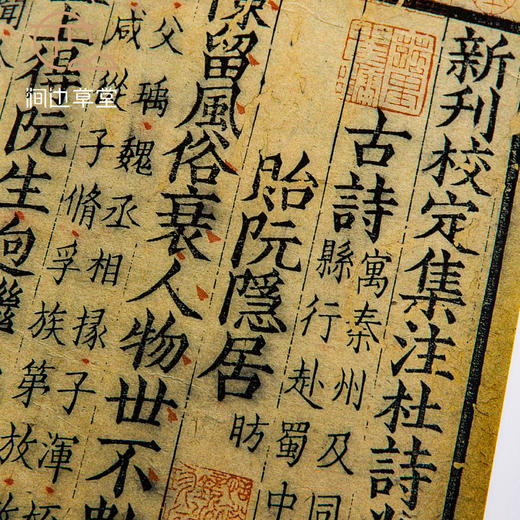 新刊校定集注杜詩
古詩
寓秦州及同
縣行赴蜀中
貽阮隱居
昉
陳留風俗衰人物世不
父瑀魏丞相掾子渾
咸從子脩孚族第放
上得阮生迥繼
涧边草堂